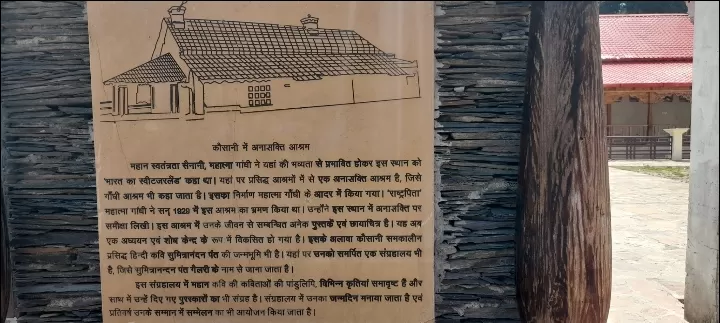 कौसानी में अनाशक्ति आश्रम
महान स्वतंत्रता सेनानी, महात्मा गांधी ने यहां की भव्यता से प्रभावित होकर इस स्थान को
'भारत का स्वीटजरलैंड' कहा था। यहां पर प्रसिद्ध आश्रमों में से एक अनाशक्ति आश्रम है, जिसे
गाँधी आश्रम भी कहा जाता है। इसका निर्माण महात्मा गाँधी के आदर में किया गया। 'राष्ट्रपिता'
महात्मा गांधी ने सन् 1929 में इस आश्रम का भ्रमण किया था। उन्होंने इस स्थान में अनाशक्ति पर
समीक्षा लिखी। इस आश्रम में उनके जीवन से सम्बन्धित अनेक पुस्तकें एवं छायाचित्र है। यह अब
एक अध्ययन एवं शोध केन्द्र के रूप में विकसित हो गया है। इसके अलावा कौसानी समकालीन
प्रसिद्ध हिन्दी कवि सुमित्रानंदन पंत की जन्मभूमि भी है। यहां पर उनको समर्पित एक संग्रहालय भी
है, जिसे सुमित्रानन्दन पंत गैलरी के नाम से जाना जाता है।
इस संग्रहालय में महान कवि की कविताओं की पांडुलिपि, विभिन्न कृतियां समावृष्ट हैं और
साथ में उन्हें दिए गए पुरस्कारों का भी संग्रह है। संग्रहालय में उनका जन्मदिन मनाया जाता है एवं
प्रतिवर्ष उनके सम्मान में सम्मेलन का भी आयोजन किया जाता है।